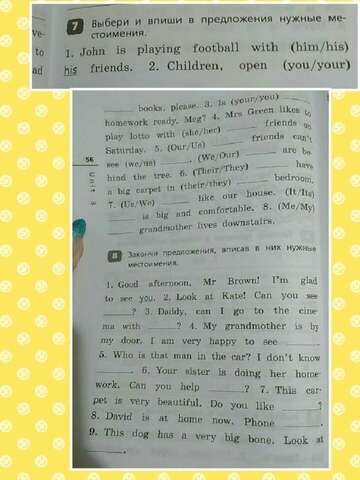 ve-
to
ad
7 Выбери и впиши в предложения нужные ме-
стоимения.
1. John is playing football with (him/his)
his friends. 2. Children, open (you/your)
books, please. 3. Is (your/you)
homework ready, Meg? 4. Mrs Green likes to
play lotto with (she/her) friends on
Saturday. 5. (Our/Us) friends can't
see (we/us) . (We/Our) are be-
hind the tree. 6. (Their/They) have
a big carpet in (their/they) bedroom.
7. (Us/We) like our house. (It/Its)
is big and comfortable. 8. (Me/My)
grandmother lives downstairs.
56
Unit 3
8 Закончи предложения, вписав в них нужные
местоимения.
1. Good afternoon, Mr Brown! I'm glad
to see you. 2. Look at Kate! Can you see
? 3. Daddy, can I go to the cine-
ma with ? 4. My grandmother is by
my door. I am very happy to see .
5. Who is that man in the car? I don't know
. 6. Your sister is doing her home-
work. Can you help ? 7. This car-
pet is very beautiful. Do you like ?
8. David is at home now. Phone .
9. This dog has a very big bone. Look at
.